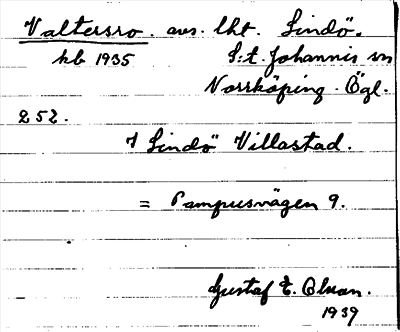 Valtersro. avs. lht. Lindö.
kb 1935 S:t Johannis sn
Norrköping. Ögl.
252.
I Lindö Villastad.
= Pampusvägen 9.
Gustaf E. Olson.
1939